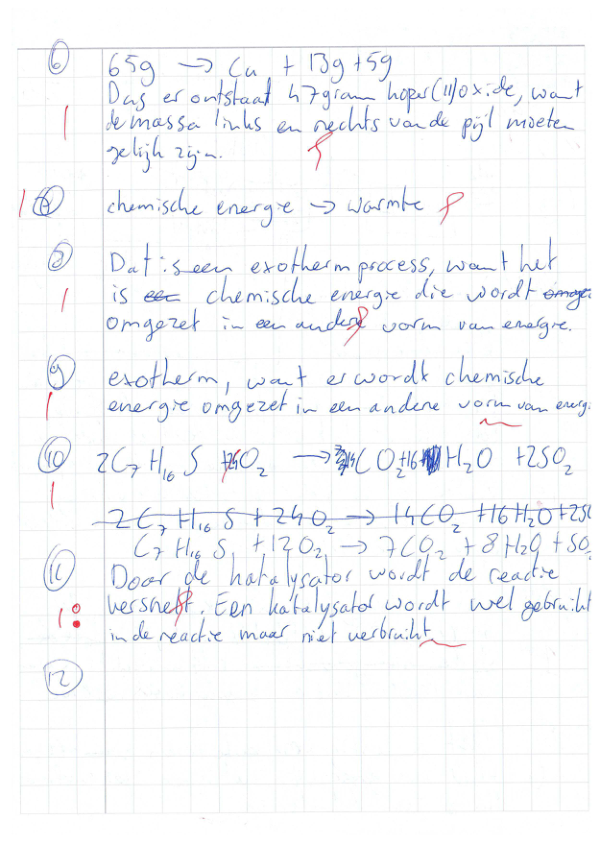 6 65g → Cu + 13g + 5g
Dus er ontstaat 47 gram koper(II)oxide, want
1 de massa links en rechts van de pijl moeten
gelijk zijn.
1 7 chemische energie → warmte
8 Dat is een exotherm process, want het
1 is chemische energie die wordt
omgezet in een andere vorm van energie.
9 exotherm, want er wordt chemische
1 energie omgezet in een andere vorm van energ.
10 2C7 H16 S O2 → 14CO2 +16 H2O +2SO2
1
2C7 H16 S + 24O2 → 14CO2 +16H2O +2SO
C7 H16 S + 12O2 → 7CO2 + 8H2O + SO2
11 Door de katalysator wordt de reactie
1 versnelt. Een katalysator wordt wel gebruikt
in de reactie maar niet verbruikt
12